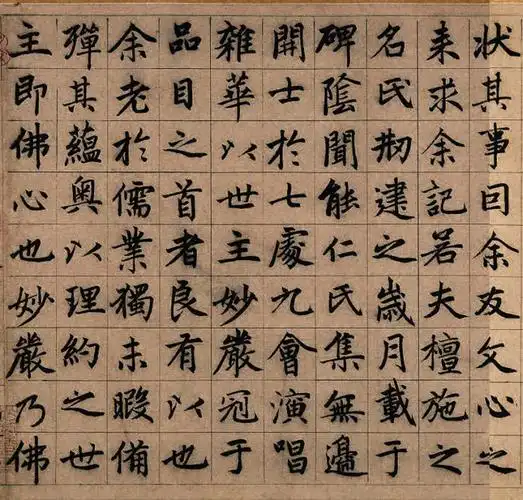 狀其事囙余友文心之
来求余記若夫檀施之
名氏刱建之歲月載于
碑陰聞能仁氏集無邊
開士於七處九會演唱
雜華以世主妙嚴冠于
品目之首者良有以也
余老於儒業獨未暇備
殫其蘊奥以理約之世
主即佛心也妙嚴乃佛